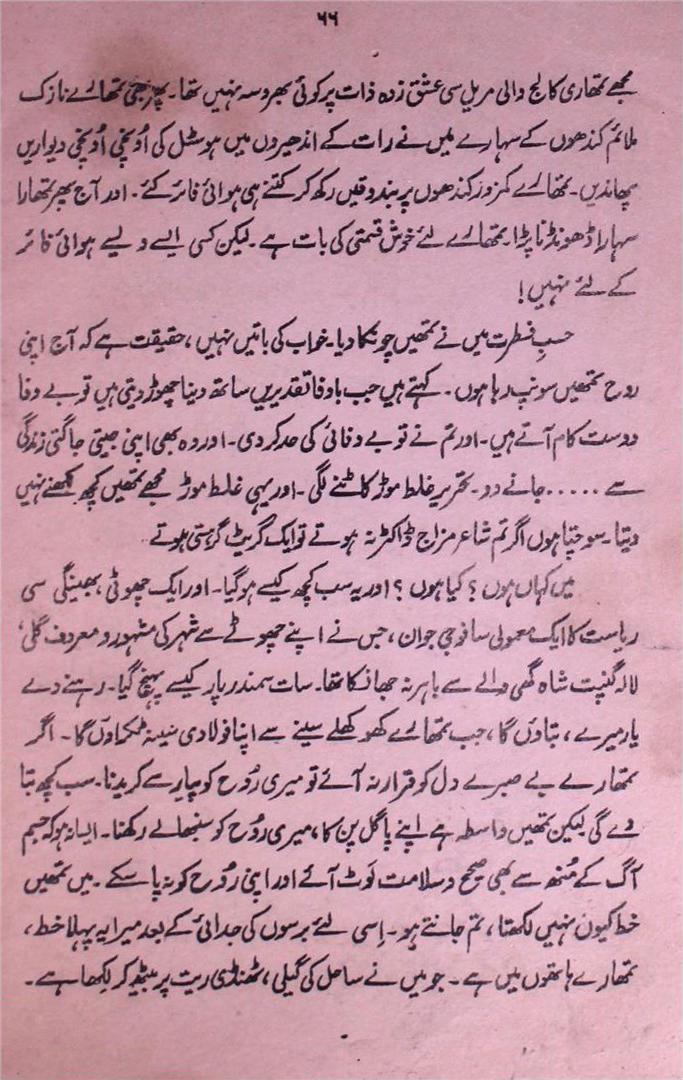 ۶۶
مجھے تمھاری کالج والی مریل سی عشق زدہ ذات پر کوئی بھروسہ نہیں تھا۔ پھر بھی تمھارے نازک
ملائم کندھوں کے سہارے میں نے رات کے اندھیروں میں ہوسٹل کی اُونچی اُونچی دیواریں
پھاندیں۔ تمھارے کمزور کندھوں پر بندوقیں رکھ کر کتنے ہی ہوائی فائر کئے۔ اور آج پھر تمھارا
سہارا ڈھونڈنا پڑا۔ تمھارے لئے خوش قسمتی کی بات ہے۔ لیکن کسی ایسے ویسے ہوائی فائر
کے لئے نہیں!
حسبِ فطرت میں نے تمھیں چونکا دیا۔ خواب کی باتیں نہیں، حقیقت ہے کہ آج اپنی
روح تمھیں سونپ رہا ہوں۔ کہتے ہیں جب باوفا تقدیریں ساتھ دینا چھوڑ دیتی ہیں تو بے وفا
دوست کام آتے ہیں۔ اور تم نے تو بے وفائی کی حد کر دی۔ اور وہ بھی اپنی جیتی جاگتی زندگی
سے ..... جانے دو۔ تحریر غلط موڑ کاٹنے لگی۔ اور یہی غلط موڑ مجھے تمھیں کچھ لکھنے نہیں
دیتا۔ سوچتا ہوں اگر تم شاعر مزاج ڈاکٹر نہ ہوتے تو ایک گریٹ گرہستی ہوتے۔
میں کہاں ہوں؟ کیا ہوں؟ اور یہ سب کچھ کیسے ہوگیا۔ اور ایک چھوٹی بھینگی سی
ریاست کا ایک معمولی سا فوجی جوان، جس نے اپنے چھوٹے سے شہر کی مشہور و معروف گلی،
لالہ گنپت شاہ گھی والے سے باہر نہ جھانکا تھا۔ سات سمندر پار کیسے پہنچ گیا۔ رہنے دے
یار میرے، بتاؤں گا، جب تمھارے کھوکھلے سینے سے اپنا فولادی سینہ ٹکراؤں گا۔ اگر
تمھارے بے صبرے دل کو قرار نہ آئے تو میری رُوح کو پیار سے کریدنا۔ سب کچھ بتا
دے گی لیکن تمھیں واسطہ ہے اپنے پاگل پن کا، میری رُوح کو سنبھالے رکھنا۔ ایسا نہ ہو کہ جسم
آگ کے مُنھ سے بھی صحیح و سلامت لَوٹ آئے اور اپنی رُوح کو نہ پا سکے۔ میں تمھیں
خط کیوں نہیں لکھتا، تم جانتے ہو۔ اِسی لئے برسوں کی جدائی کے بعد میرا یہ پہلا خط،
تمھارے ہاتھوں میں ہے۔ جو میں نے ساحل کی گیلی، ٹھنڈی ریت پر بیٹھ کر لکھا ہے۔